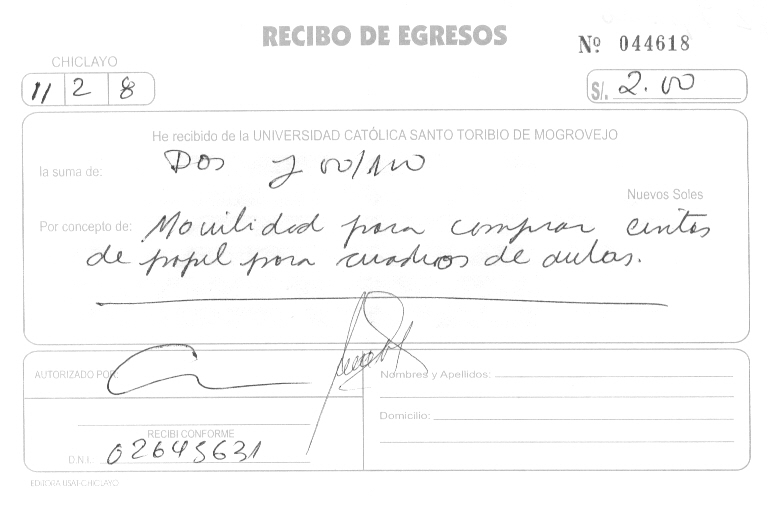 RECIBO DE EGRESOS
Nº 044618
CHICLAYO
11 2 8
S/. 2.00
He recibido de la UNIVERSIDAD CATÓLICA SANTO TORIBIO DE MOGROVEJO
la suma de: Dos y 00/100
Nuevos Soles
Por concepto de: Movilidad para comprar cintas
de papel para cuadros de aulas.
AUTORIZADO POR:
Nombres y Apellidos:
Domicilio:
RECIBI CONFORME
D.N.I. 02645631
EDITORA USAT-CHICLAYO